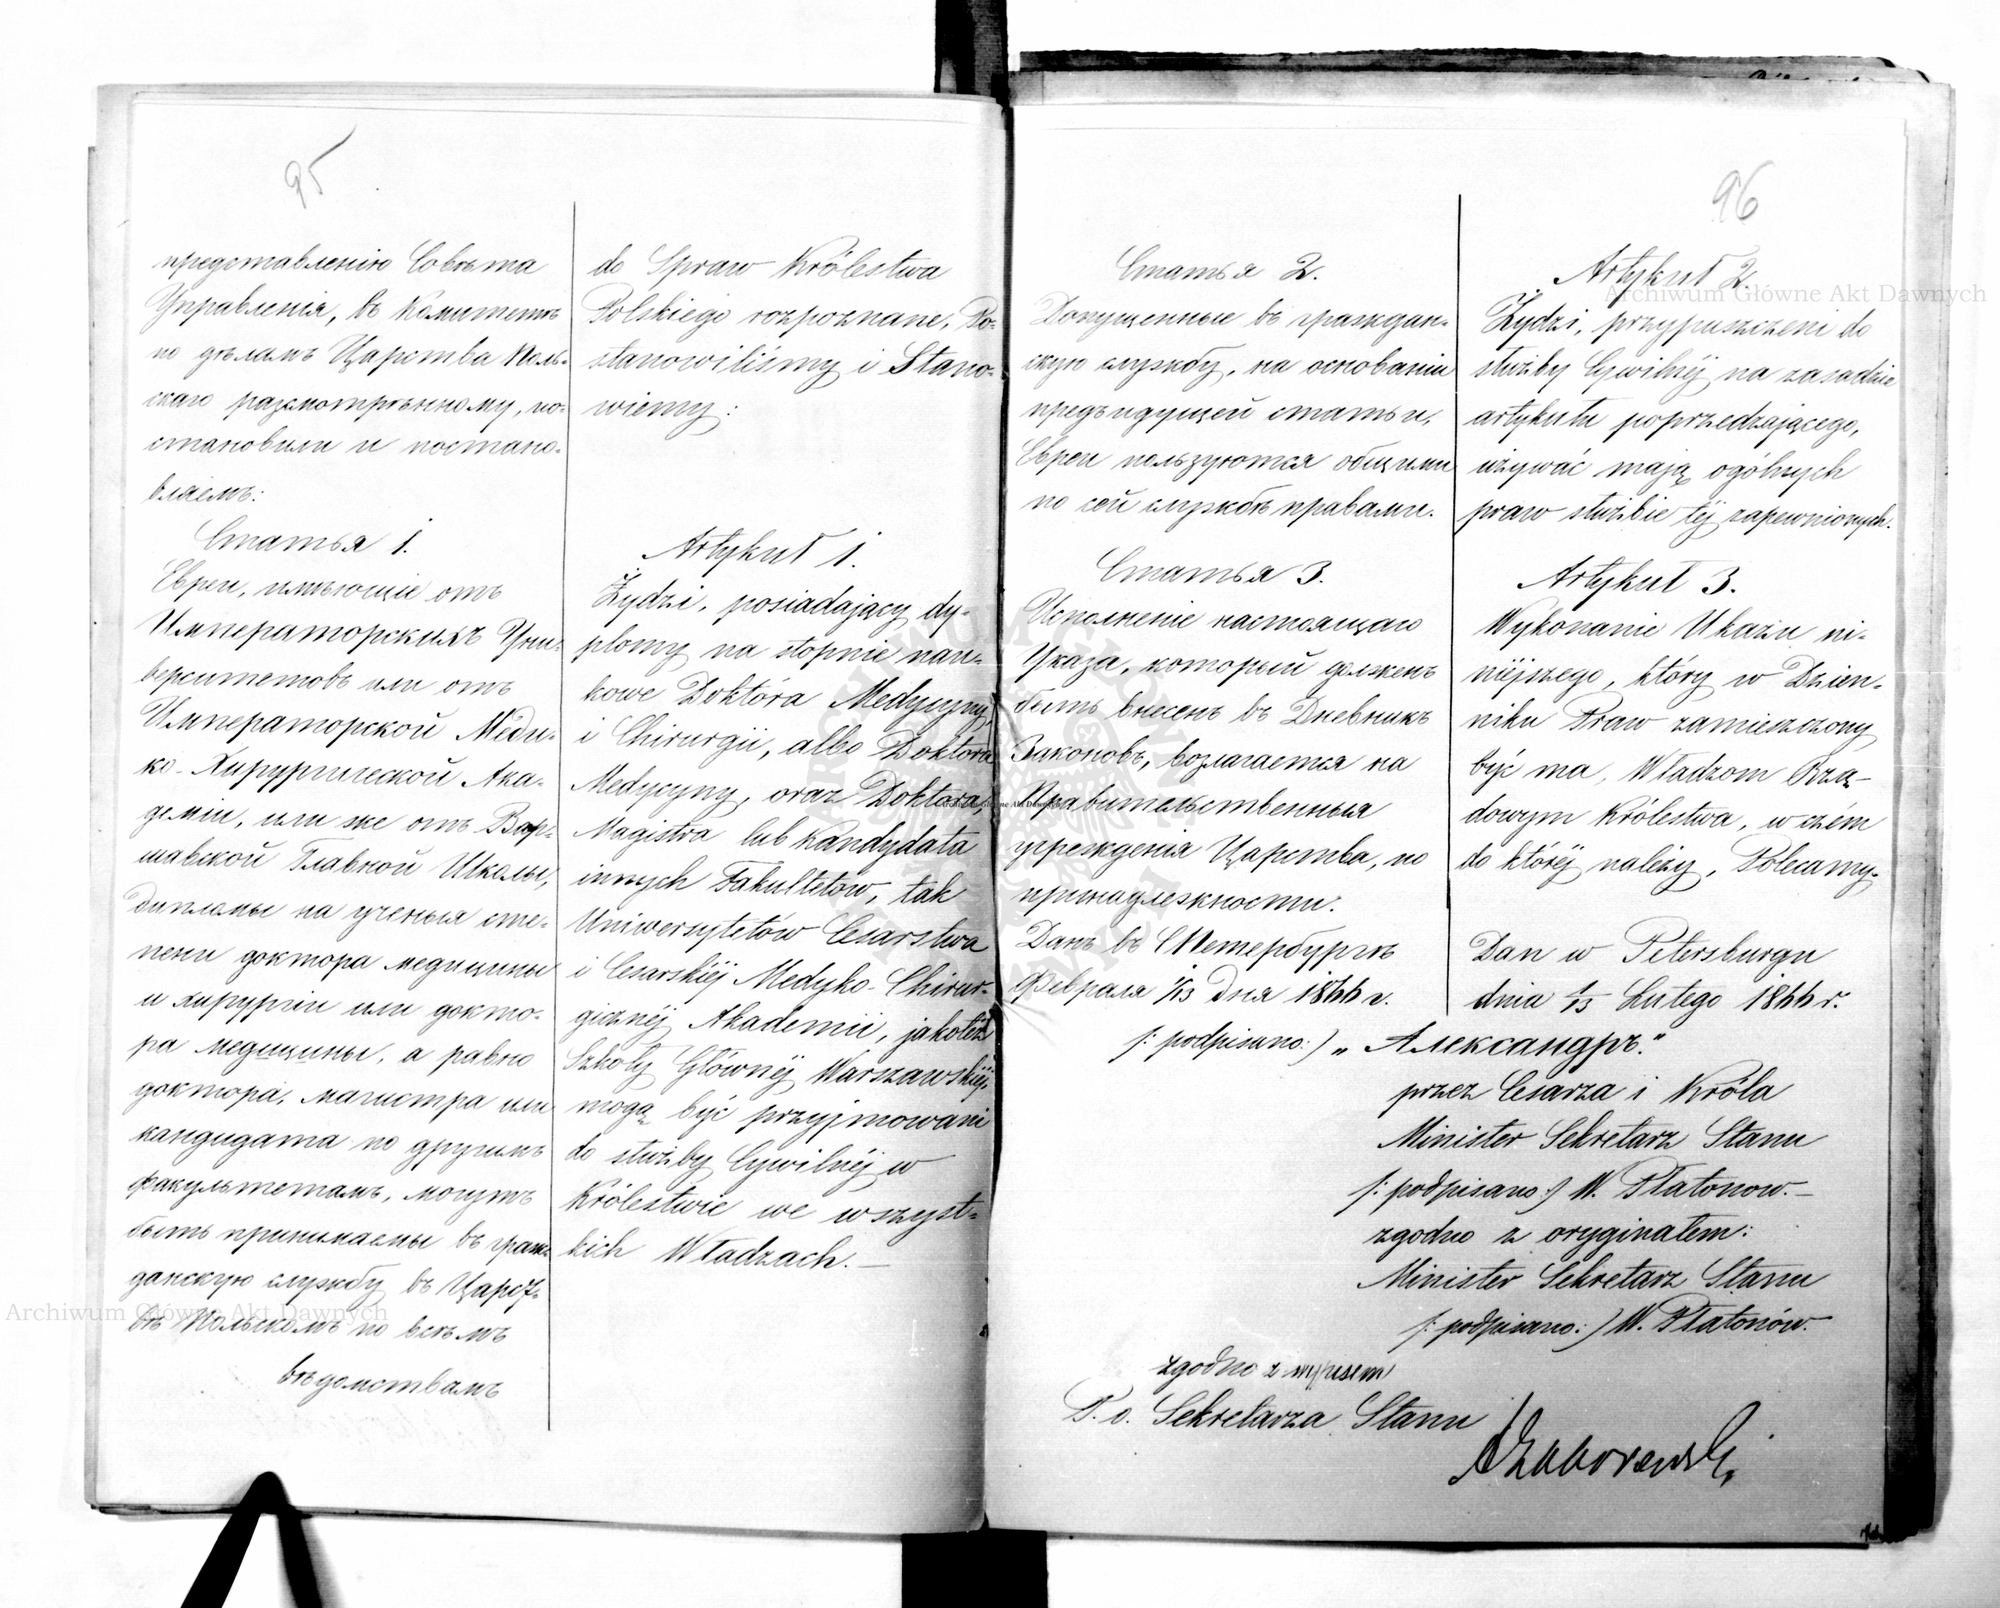 95
представленію Совѣта
Управленія, въ Комитетѣ
по дѣламъ Царства Поль-
скаго разсмотрѣнному, по-
становили и постано-
вляемъ:
Статья 1.
Евреи, имѣющіе отъ
Императорскихъ Уни-
верситетовъ или отъ
Императорской Меди-
ко-Хирургической Ака-
деміи, или же отъ Вар-
шавской Главной Школы,
дипломы на ученыя сте-
пени доктора медицины
и хирургіи или докто-
ра медицины, а равно
доктора, магистра или
кандидата по другимъ
факультетамъ, могутъ
быть принимаемы въ граж-
данскую службу въ Царст-
вѣ Польскомъ по всѣмъ
вѣдомствамъ
do Spraw Królestwa
Polskiego rozpoznane, Po-
stanowiliśmy i Stano-
wiemy:
Artykuł 1.
Żydzi, posiadający dy-
plomy na stopnie nau-
kowe Doktóra Medycyny
i Chirurgii, albo Doktora
Medycyny, oraz Doktora,
Magistra lub Kandydata
innych Fakultetów, tak
Uniwersytetów Cesarstwa
i Cesarskiéj Medyko-Chirur-
gicznéj Akademii, jakoteż
Szkoły Głównéj Warszawskiéj,
mogą być przyjmowani
do służby Cywilnéj w
Królestwie we wszyst-
kich Władzach.—
96
Статья 2.
Допущенные въ граждан-
скую службу, на основаніи
предъидущей статьи,
Евреи пользуются общими
по сей службѣ правами.
Статья 3.
Исполненіе настоящаго
Указа, который долженъ
быть внесенъ въ Дневникъ
Законовъ, возлагается на
Правительственныя
учрежденія Царства, по
принадлежности.
Данъ въ СПетербургѣ
Февраля 1/13 Дня 1866 г.
Artykuł 2.
Żydzi, przypuszczeni do
służby Cywilnéj na zasadzie
artykułu poprzedzającego,
używać mają ogólnych
praw służbie téj zapewnionych.
Artykuł 3.
Wykonanie Ukazu ni-
niéjszego, który w Dzien-
niku Praw zamieszczony
być ma, Władzom Rzą-
dowym Królestwa, w czém
do któréj należy, Polecamy.
Dan w Petersburgu
dnia 1/13 Lutego 1866 r.
/: podpisano:/ „Александръ."
przez Cesarza i Króla
Minister Sekretarz Stanu
/: podpisano:/ W. Płatonow.—
zgodno z oryginałem:
Minister Sekretarz Stanu
/: podpisano:/ W. Płatonów.
zgodno z wypisem
P. o. Sekretarza Stanu
Archiwum Główne Akt Dawnych
Archiwum Główne Akt Dawnych
Archiwum Główne Akt Dawnych